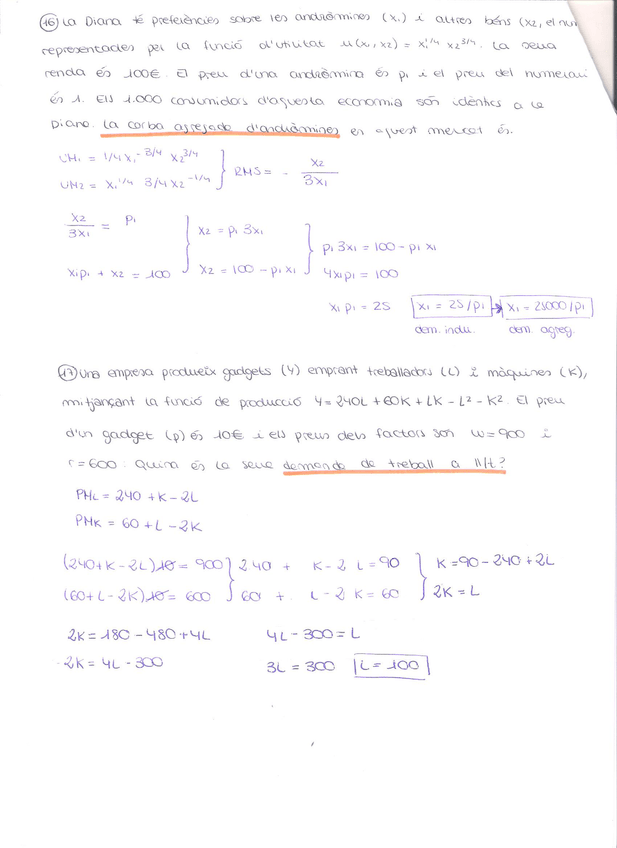 16) La Diana té preferències sobre les andròmines (x1) i altres béns (x2, el nu
representades per la funció d'utilitat u(x1, x2) = x1^1/4 x2^3/4. La seua
renda és 100€. El preu d'una andròmina és p1 i el preu del numerari
és 1. Els 1.000 consumidors d'aquesta economia són idèntics a la
Diana. La corba agregada d'andròmines en aquest mercat és.
UM1 = 1/4 x1^-3/4 x2^3/4
UM2 = x1^1/4 3/4 x2^-1/4
RMS = - x2/3x1
x2/3x1 = p1
x1p1 + x2 = 100
x2 = p1 3x1
x2 = 100 - p1 x1
p1 3x1 = 100 - p1 x1
4x1p1 = 100
x1 p1 = 25 x1 = 25/p1 → x1 = 25000/p1
dem. indiv. dem. agreg.
17) Una empresa produeix gadgets (Y) emprant treballadors (L) i màquines (K),
mitjançant la funció de producció Y = 240L + 60K + LK - L² - K². El preu
d'un gadget (p) és 10€ i els preus dels factors son w = 900 i
r = 600. Quina és la seua demanda de treball a ll/t?
PML = 240 + K - 2L
PMK = 60 + L - 2K
(240 + K - 2L)10 = 900
(60 + L - 2K)10 = 600
240 + K - 2L = 90
60 + L - 2K = 60
K = 90 - 240 + 2L
2K = L
2K = 180 - 480 + 4L
2K = 4L - 300
4L - 300 = L
3L = 300 L = 100